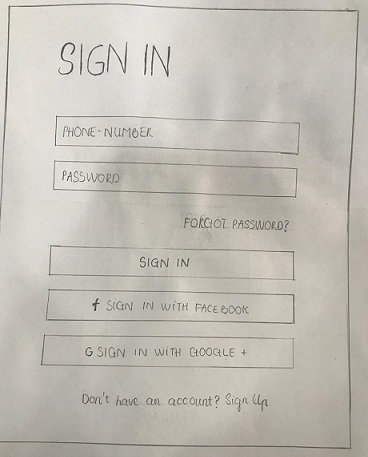 SIGN IN
PHONE-NUMBER
PASSWORD
FORGOT PASSWORD?
SIGN IN
f SIGN IN WITH FACEBOOK
G SIGN IN WITH GOOGLE +
Don't have an account? Sign Up